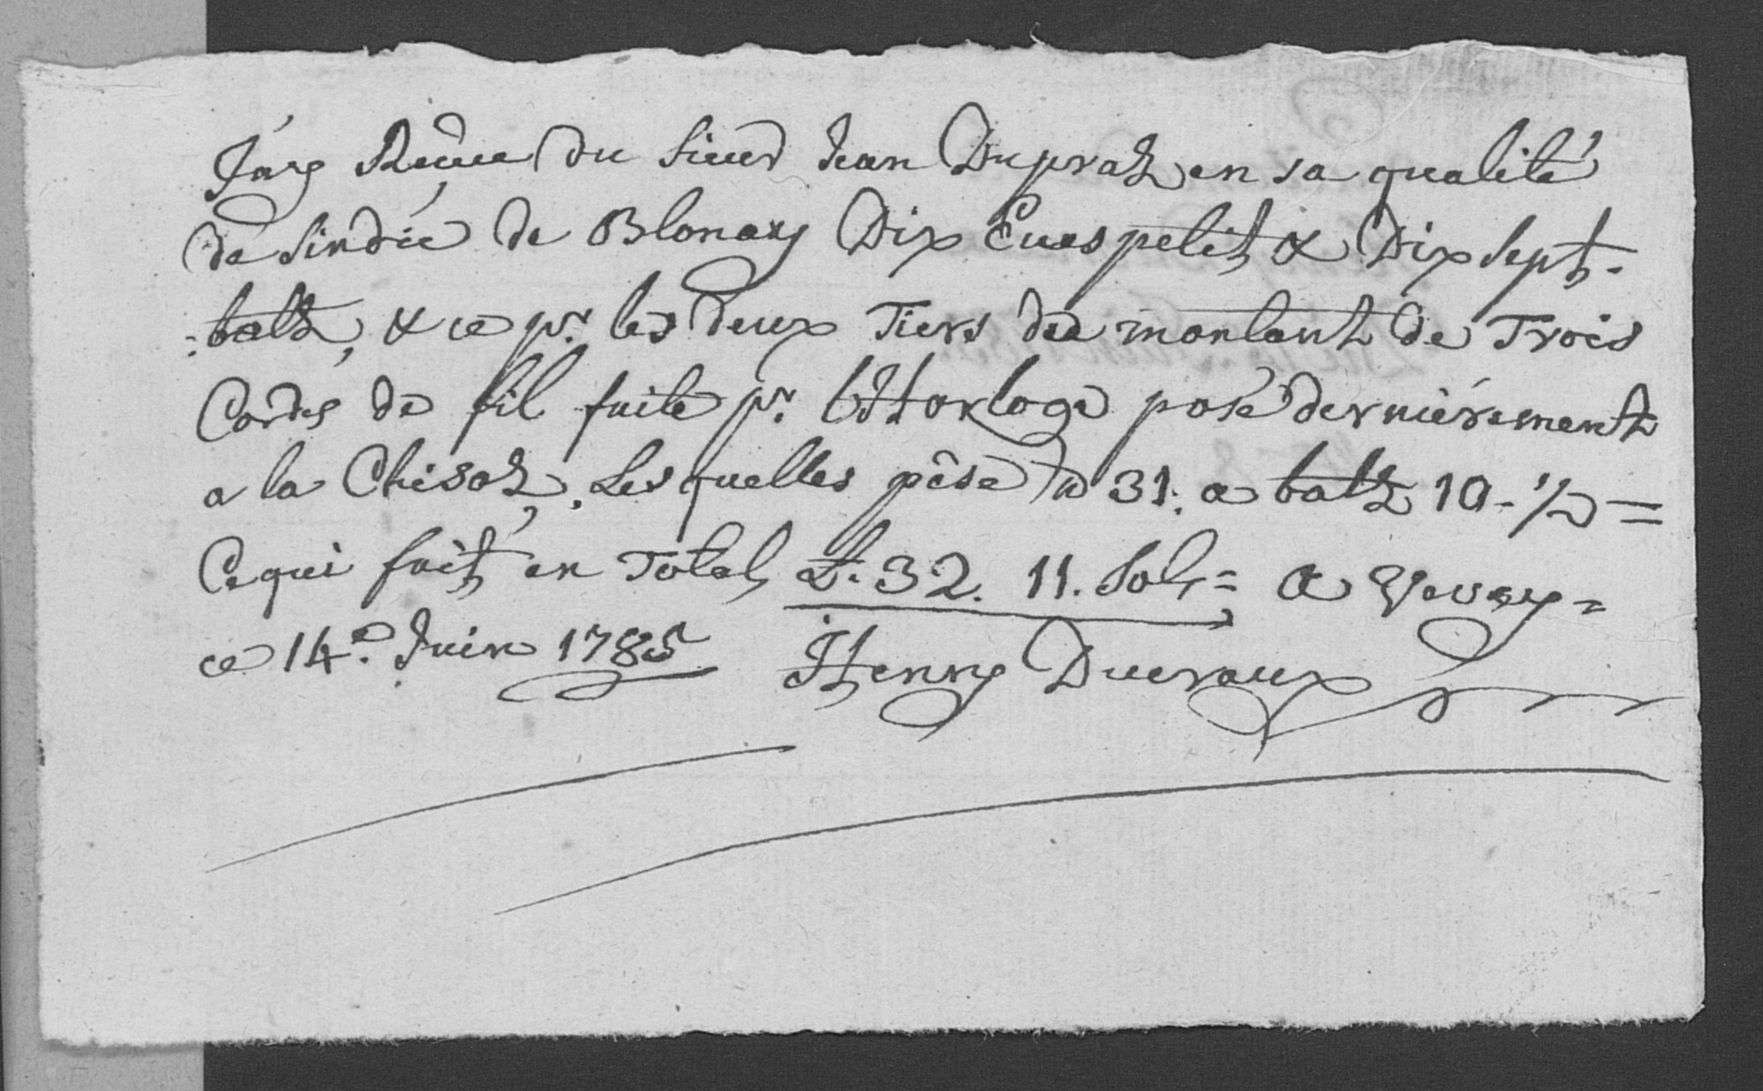 J'ay Reçue du Sieur Jean Dupraz en sa qualité
de Sindic de Blonay Dix Ecus petit & Dix Sept
batz, & ce pr. les deux Tiers des montant de Trois
Cordes de fil faite pr. l'Horloge posé derniérement
a la Chisaz, Lesquelles pêse ℔ 31: a batz 10-1/2 =
Ce qui fait en Total L. 32. 11. Sols = a Vevey =
ce 14e. Juin 1785 Henry Ducraux